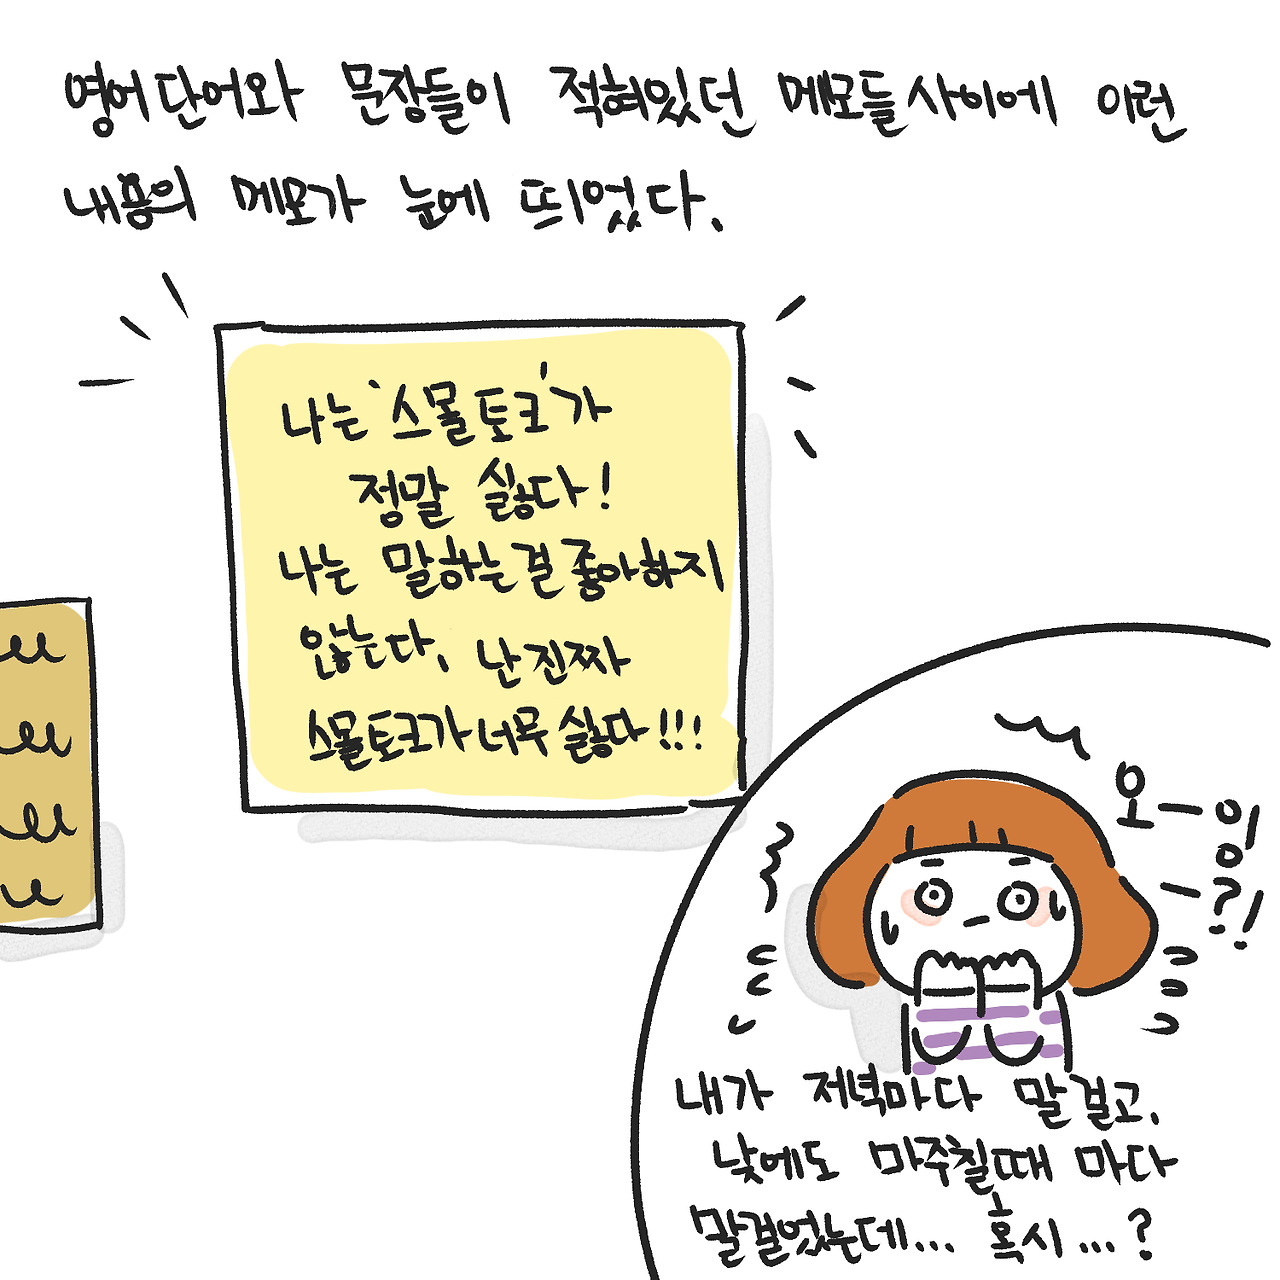 영어단어와 문장들이 적혀있던 메모들사이에 이런
내용의 메모가 눈에 띄었다.
나는 '스몰토크'가
정말 싫다!
나는 말하는걸 좋아하지
않는다. 난 진짜
스몰토크가 너무 싫다!!!
오-잉
-?!
내가 저녁마다 말걸고,
낮에도 마주칠때 마다
말걸었는데... 혹시...?